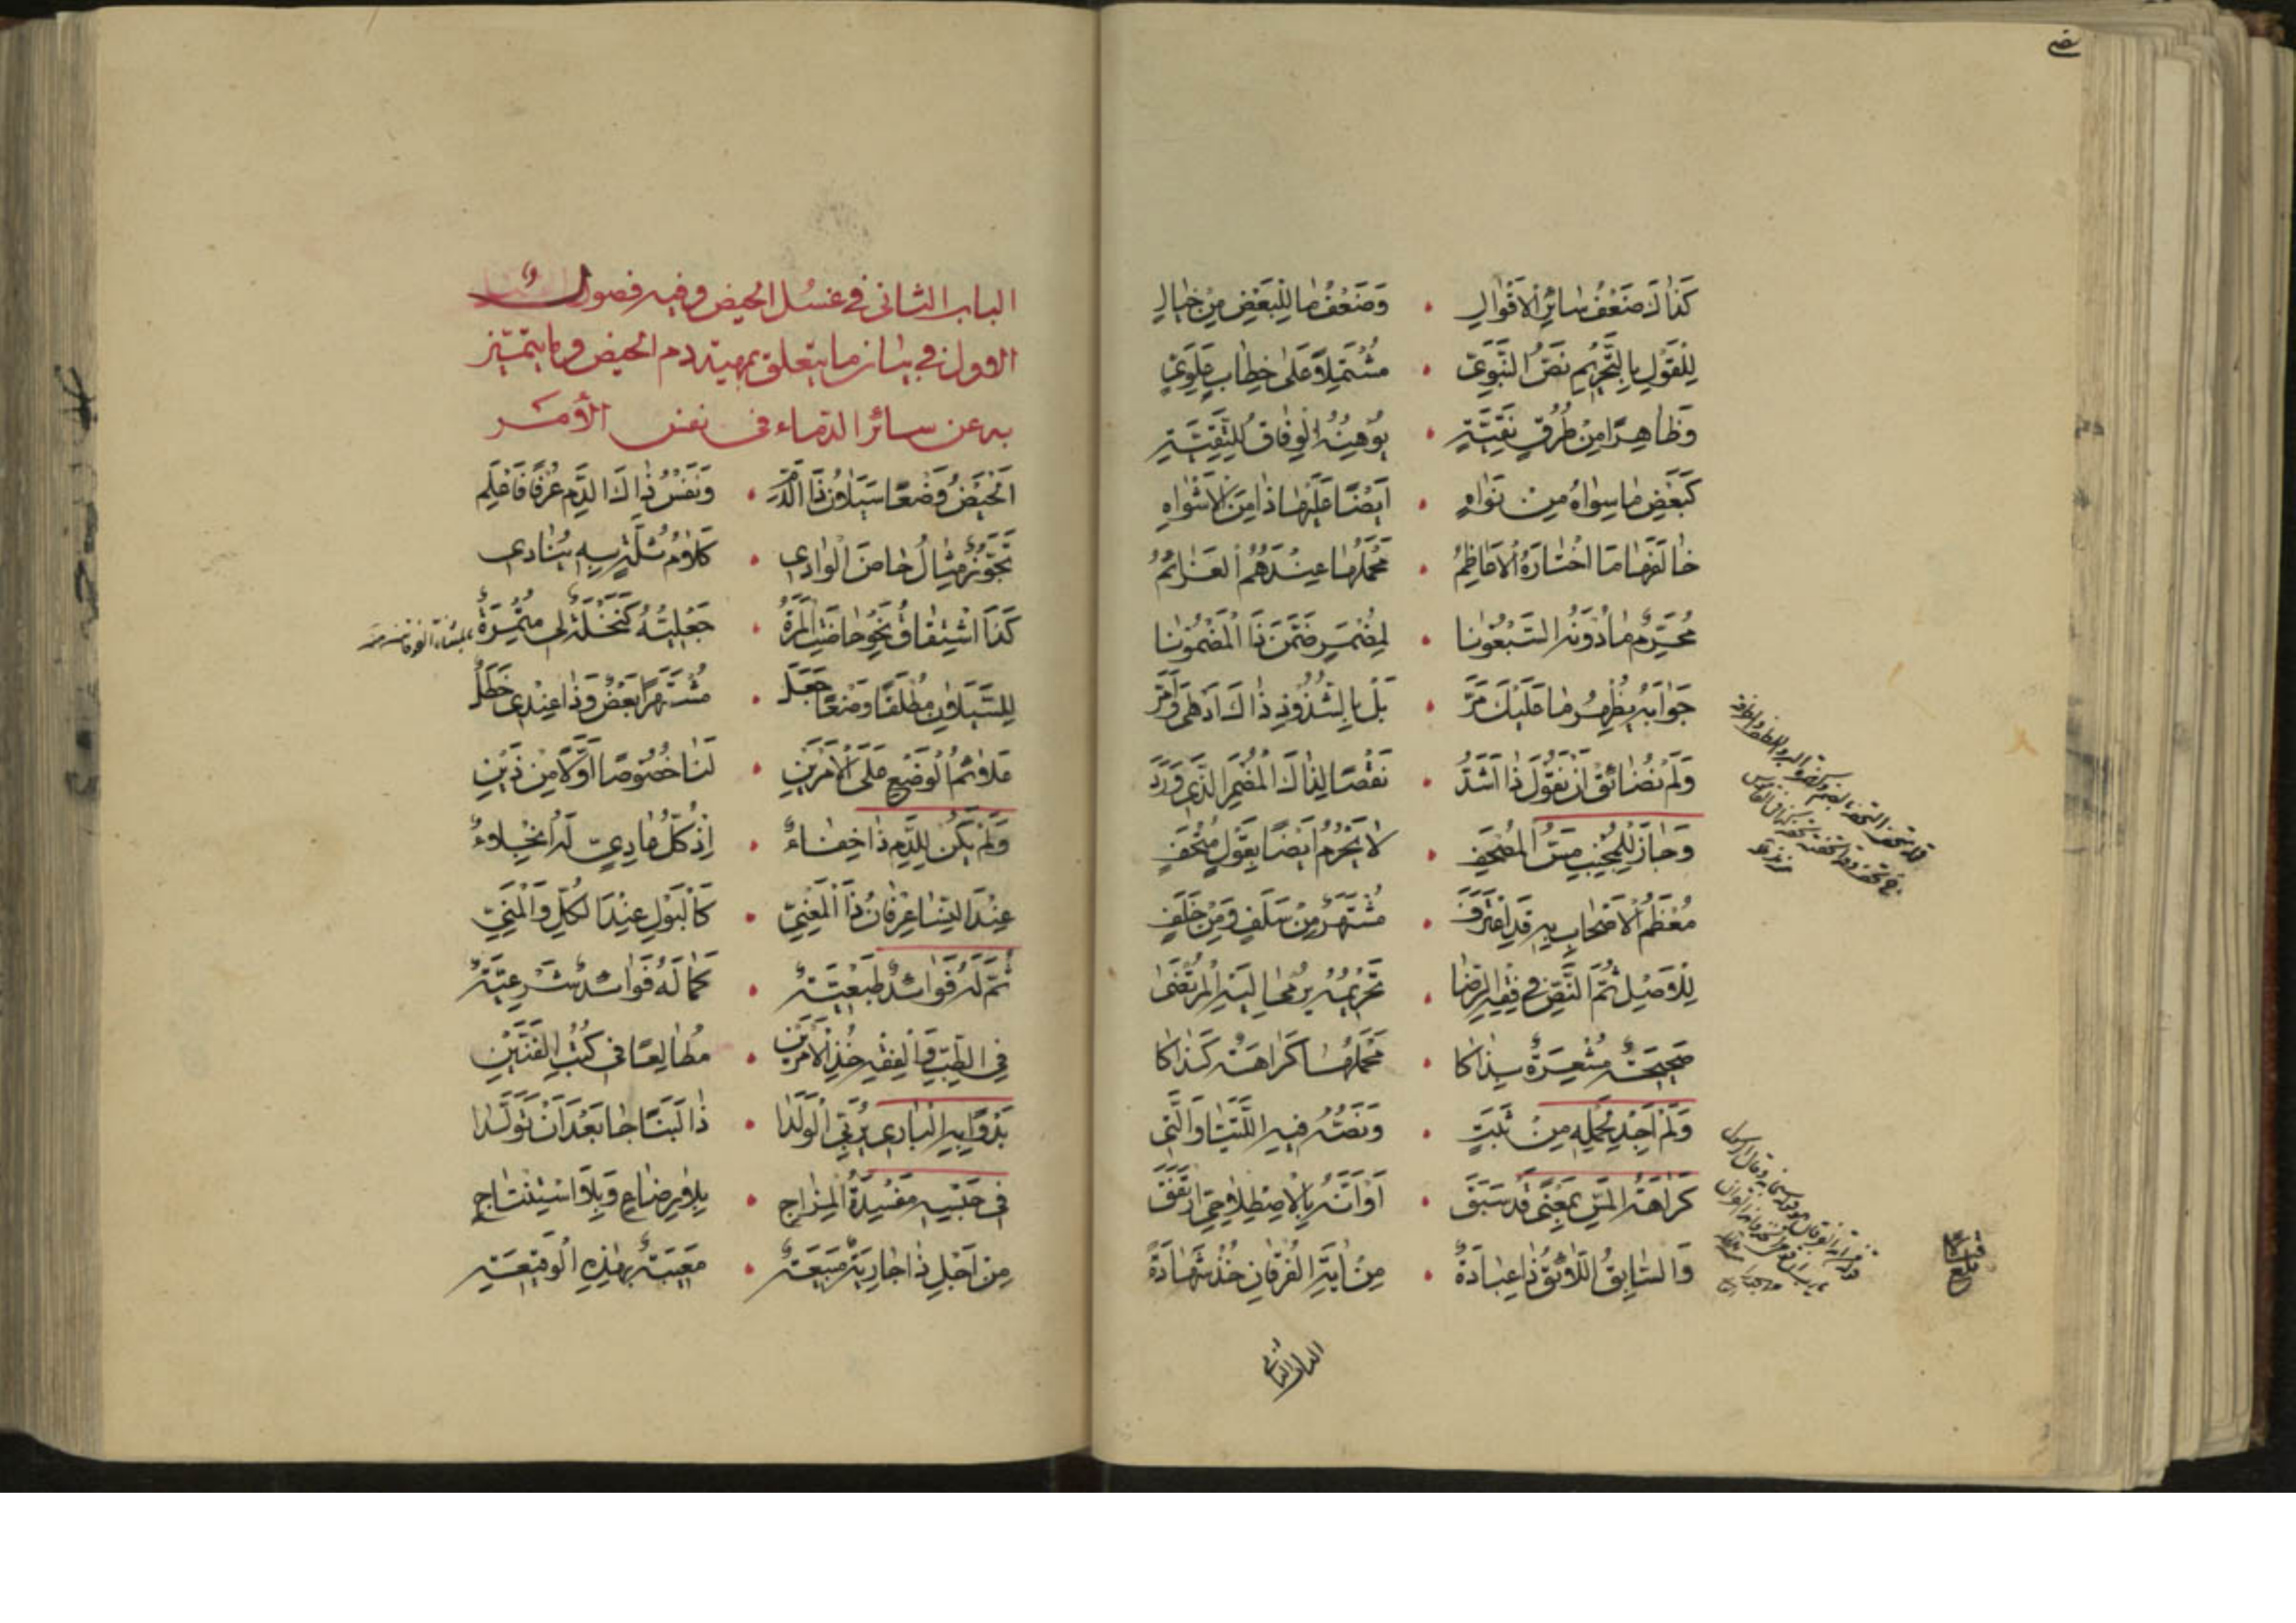 كَذَاكَ ضَعْفُ سَائِرِ الْأَقْوَالِ • وَضَعْفُ مَا لِلْبَعْضِ مِنْ خَيَالِ
لِلْقَوْلِ بِالتَّحْرِيمِ نَصُّ النَّبَوِيّ • مُشْتَمِلًا عَلَى خِطَابٍ عَلَوِيّ
وَظَاهِرًا مِنْ طُرُقٍ نَقِيَّةٍ • يُوهِنُهُ الْوِفَاقُ لِلتَّقِيَّةِ
كَبَعْضِ مَا سِوَاهُ مِنْ نَوَاهٍ • أَيْضًا عَلَيْهَا ذَا مِنَ الْأَشْوَاهِ
خَالَفَهَا مَا اخْتَارَهُ الْأَعَاظِمُ • مَحْمَلُهَا عِنْدَهُمُ الْعَزَائِمُ
مُحَرِّمٌ مَا دُونَهُ السَّبْعُونَا • لِمُضْمَرٍ ضَمَّنَ ذَا الْمَضْمُونَا
جَوَابُهُ يَظْهَرُ مَا عَلَيْكَ مَرّ • بَلْ بِالشُّذُوذِ ذَاكَ أَدْهَى وَأَمَرّ
وَلَمْ نُضَائِقْ أَنْ نَقُولَ ذَا أَشَدّ • نَقْصًا لِذَاكَ الْمُضْمَرِ الَّذِي وَرَدَ
وَجَازَ لِلْمُجْنِبِ مَسُّ الْمُصْحَفِ • لَا يَحْرُمُ أَيْضًا بِقَوْلٍ مُتْحَفٍ
مُعْظَمُ الْأَصْحَابِ بِهِ قَدِ اعْتَرَفَ • مُشْتَهَرٌ مِنْ سَلَفٍ وَمِنْ خَلَفٍ
لِلْأَصْلِ ثُمَّ النَّصِّ فِي فِقْهِ الرِّضَا • تَحْرِيمُهُ يُرْمَى إِلَيْهِ الْمُرْتَضَى
صَحِيحَةٌ مُشْعِرَةٌ بِذَاكَا • مَحْمَلُهَا كَرَاهَةٌ كَذَاكَا
وَلَمْ أَجِدْ لِحَمْلِهِ مِنْ ثَبَتٍ • وَنَصُّهُ فِيهِ اللَّتَيَّا وَالَّتِي
كَرَاهَةُ الْمَسِّ بِمَعْنًى قَدْ سَبَقَ • أَوْ أَنَّهُ بِالْاصْطِلَاحِيِّ اتَّفَقَ
وَالسَّابِقُ اللَّائِقُ ذَا عِبَادَةً • مِنْ آيَةِ الْفُرْقَانِ خُذْ شَهَادَةً
الباب الثاني
الباب الثاني في غسل الحيض وفيه فصول
الاول في بيان ما يتعلق بمهية دم الحيض وما يتميّز
به عن سائر الدّماء في نفس الأمر
الْحَيْضُ وَضْعًا سَيَلَانُ ذَا الدَّمِ • وَنَفْسُ ذَاكَ الدَّمِ عُرْفًا فَاعْلَمِ
تَجَوُّزٌ مِثَالُ حَاضَ الْوَادِي • كَلَامُ ثُلَّةٍ بِهِ يُنَادِي
كَذَا اشْتِقَاقُ نَحْوِ حَاضَتِ الْمَرْأَةُ • جَعَلْتُهُ كَنَخْلَةٍ لِي مُثْمِرَةً
لِلسَّيَلَانِ مُطْلَقًا وَضْعًا جَعَلَ • مُشْتَهَرًا بَعْضٌ وَذَا عِنْدِي خَطَلٌ
عَلَائِمُ الْوَضْعِ عَلَى الْأَمْرَيْنِ • لَنَا خُصُوصًا أَوَّلًا مِنْ ذَيْنِ
وَلَمْ يَكُنْ لِلدَّمِ ذَا خِفَاءٌ • إِذْ كُلُّ هَادِيٍّ لَهُ انْجِلَاءٌ
عِنْدَ النِّسَا عِرْفَانُ ذَا الْمَعْنِيّ • كَالْبَوْلِ عِنْدَ الْكُلِّ وَالْمَنِيّ
ثُمَّ لَهُ فَوَائِدٌ طَبْعِيَّةٌ • كَمَا لَهُ فَوَائِدٌ شَرْعِيَّةٌ
فِي الطِّبِّ وَالْفِقْهِ خُذِ الْأَمْرَيْنِ • مُطَالِعًا فِي كُتُبِ الْفَنَّيْنِ
بَدْوًا بِهِ الْبَارِي يُرَبِّي الْوَلَدَا • ذَا لَبَنًا جَا بَعْدَ أَنْ تَوَلَّدَا
فِي حَبْسِهِ مَفْسَدَةُ الْمِزَاجِ • بِلَا رِضَاعٍ وَبِلَا اسْتِنْتَاجِ
مِنْ أَجْلِ ذَا جَارِيَةٌ مَبِيعَةٌ • مَعِيبَةٌ بِهَذِهِ الْوَقِيعَةِ